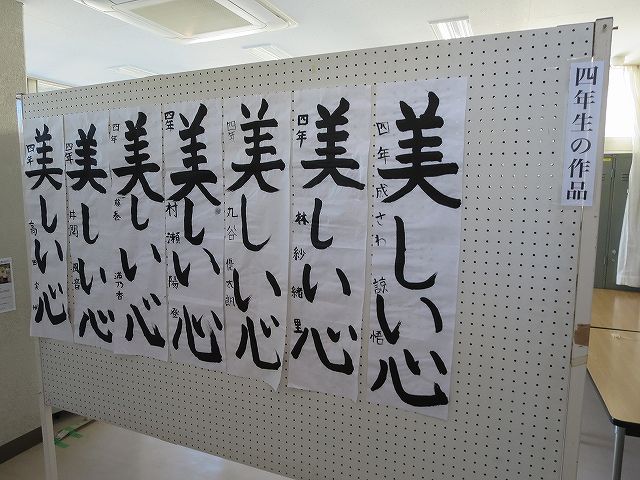 四年生の作品
美しい心
四年 成さわ 諒悟
美しい心
四年 林 紗緒里
美しい心
四年 九谷 優太朗
美しい心
四年 村瀬 陽登
美しい心
四年 藤巻 満乃香
美しい心
四年 井関 風音
美しい心
四年 高